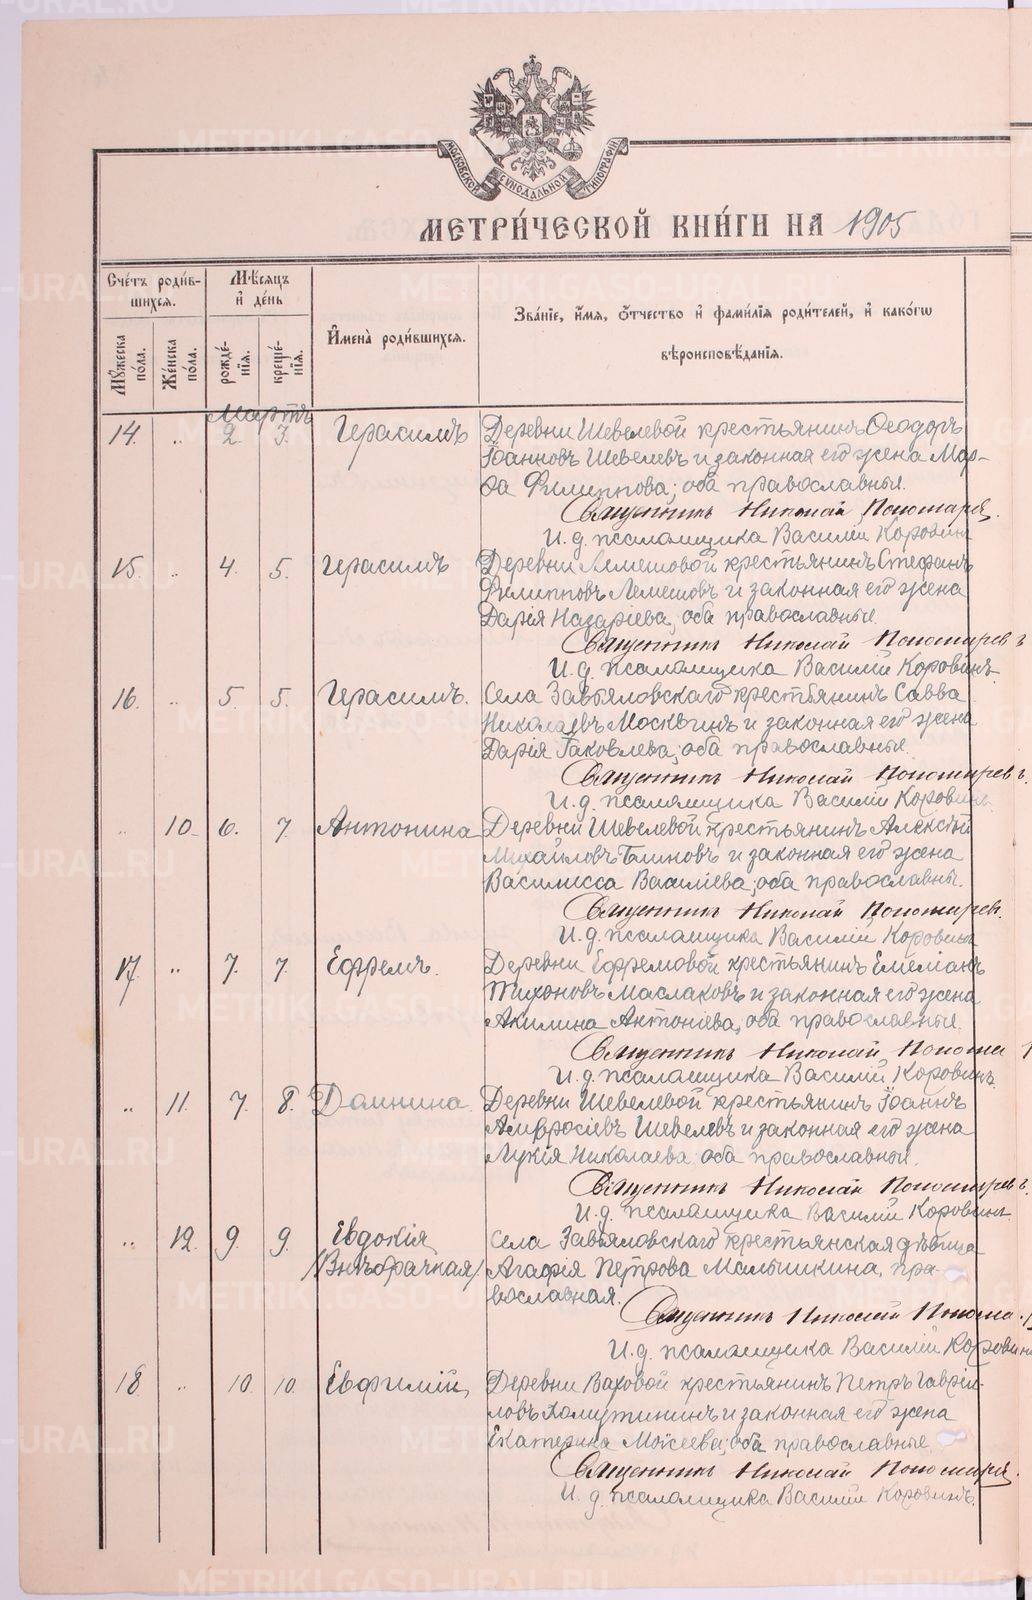 МОСКОВСКОЙ СѴНОДАЛЬНОЙ ТИПОГРАФІИ
МЕТРИ́ЧЕСКОЙ КНИ́ГИ НА 1905
Сче́тъ роди́в-
шихся.
Мѣ́сяцъ
и҆ де́нь
И҆мена̀ роди́вшихся.
Зва́нїе, и҆́мя, ѻ҆́тчество и҆ фами́лїя роди́телей, и҆ како́гѡ
вѣроисповѣ́данїя.
Мꙋ́жеска по́ла.
Же́нска по́ла.
рожде́-
нїя.
креще́-
нїя.
Мартъ
14. „ 2. 3. Герасимъ Деревни Шевелевой крестьянинъ Ѳеодоръ
Іоанновъ Шевелевъ и законная его жена Мар-
ѳа Филиппова; оба православные.
Священникъ Николай Пономарев
И. д. псаломщика Василій Коровинъ
15. „ 4. 5. Герасимъ Деревни Лемешовой крестьянинъ Стефанъ
Филипповъ Лемешовъ и законная его жена
Дарія Назаріева, оба православные.
Священникъ Николай Пономаревъ
И. д. псаломщика Василій Коровинъ
16. „ 5. 5. Герасимъ. Села Завьяловскаго крестьянинъ Савва
Николаевъ Москвинъ и законная его жена
Дарія Іаковлева, оба православные.
Священникъ Николай Пономаревъ
И. д. псаломщика Василій Коровинъ
„ 10. 6. 7. Антонина Деревни Шевелевой крестьянинъ Алексѣй
Михайловъ Блиновъ и законная его жена
Василисса Василіева, оба православны.
Священникъ Николай Пономарев.
И. д. псаломщика Василій Коровинъ
17. „ 7. 7. Ефремъ. Деревни Ефремовой крестьянинъ Емеліанъ
Тихоновъ Маслаковъ и законная его жена
Акилина Антоніева, оба православные.
Священникъ Николай Понома
И. д. псаломщика Василій Коровинъ.
„ 11. 7. 8. Домнина. Деревни Шевелевой крестьянинъ Іоаннъ
Амвросіевъ Шевелевъ и законная его жена
Лукія Николаева оба православные.
Священникъ Николай Пономаревъ
И. д. псаломщика Василій Коровинъ
„ 12. 9. 9. Евдокія Села Завьяловскаго крестьянская дѣвица
/Внѣбрачная/ Агафія Петрова Малышкина, пра-
вославная.
Священникъ Николай Понома
И. д. псаломщика Василій Коровинъ
18 „ 10. 10. Евфимій, Деревни Ваховой крестьянинъ Петръ Гавріи-
ловъ Хомутининъ и законная его жена
Екатерина Моисеева; оба православные.
Священникъ Николай Пономарев.
И. д. псаломщика Василій Коровинъ.
METRIKI.GASO-URAL.RU